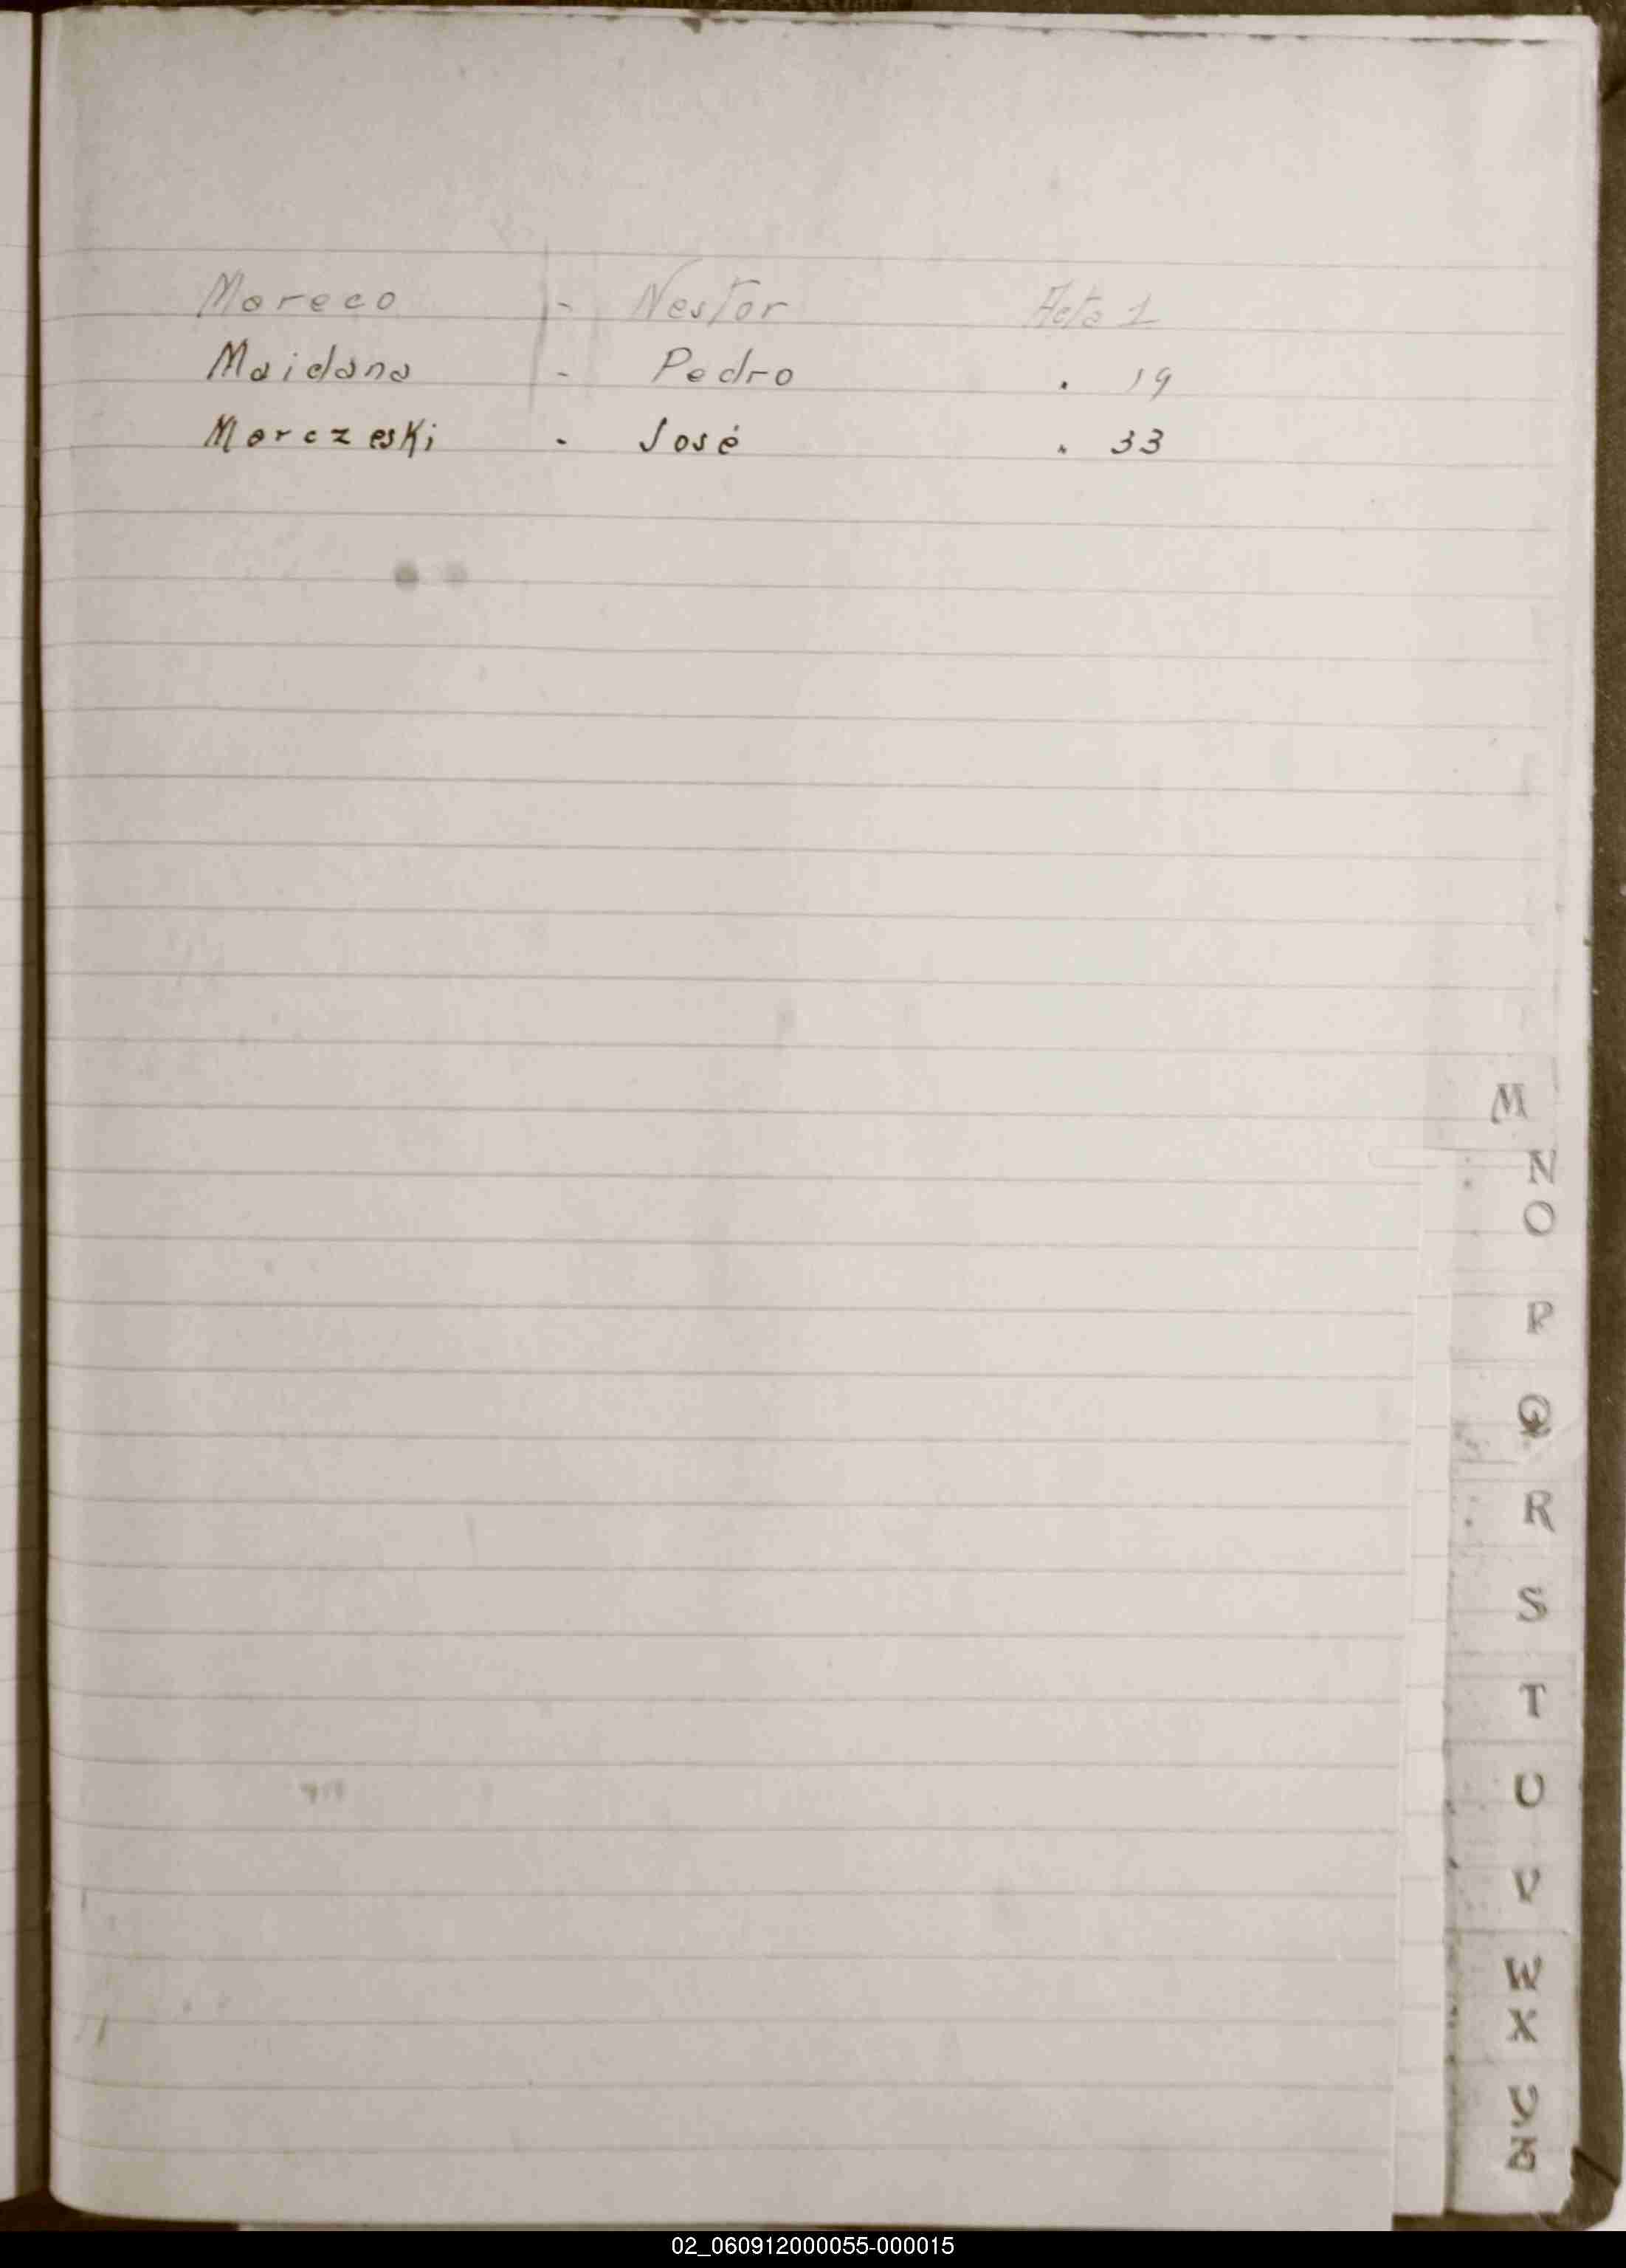 Mareco - Nestor Acta 1
Maidana - Pedro . 19
Marczeski - José . 33
M
N
O
P
Q
R
S
T
U
V
W
X
Y
Z
02_060912000055-000015